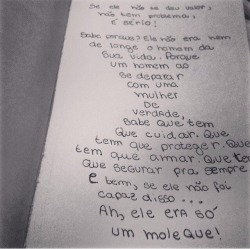 Se ele não te deu valor,
não tem problema,
É SÉRIO!
Sabe porque? Ele não era nem
de longe o homem da
Sua vida. Porque
um homem ao
Se deparar
com uma
mulher
De
verdade,
Sabe que tem
Que cuidar. Que
tem que proteger. Que
tem que amar. Que tem
Que segurar pra sempre
E bem, se ele não foi
capaz disso...
Ah, ele era só
um moleque!